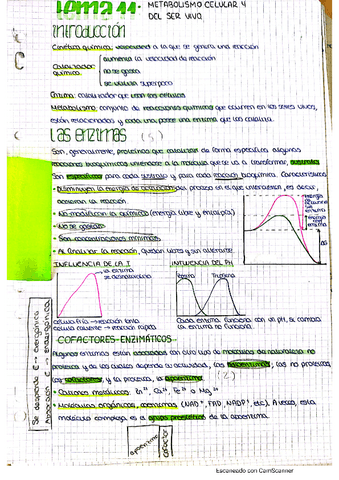 Tema 11.- METABOLISMO CELULAR Y
DEL SER VIVO
Introducción
Cinética química: velocidad a la que se genera una reacción
Catalizador química
aumenta la velocidad de reacción
no se gasta
se utiliza
Enzima: catalizador que usan las células
Metabolismo conjunto de reacciones químicas que ocurren en los seres vivos,
están relacionadas y cada una posee una enzima que las cataliza.
Las enzimas (S)
Son, generalmente, proteínas que catalizan de forma específica algunas
reacciones bioquímicas uniéndose a la molécula que se va a transformar,
Son específicas para cada sustrato y para cada reacción bioquímica. Características
- Disminuyen la energía de activación proceso en el que intervienen, es decir,
aceleran la reacción
- No modifican la química (energía libre y entalpía)
- No se gastan
- Son concentraciones mínimas
- Al finalizar la reacción, quedan libres y sin alterarse
energía
sin
enzima
energía
con
enzima
INFLUENCIA DE LA T
INFLUENCIA DEL PH
la enzima
se desnaturaliza
Pepsina
Tripsina
célula fría → reacción lenta
célula caliente → reacción rápida
Cada enzima funciona con un pH, si cambia
la enzima no funciona
Se desprende E → exergónica
E → endergónica
COFACTORES ENZIMÁTICOS
Algunas enzimas están asociadas con otro tipo de moléculas de naturaleza no
proteica y de las cuales depende su actividad, las holoenzimas; las no proteicas,
los cofactores, y la proteica, la apoenzima. (2)
- Cationes metálicos:
- Moléculas orgánicas, coenzimas (NAD+, FAD, NADP+, etc). A veces, esta
molécula compleja es un grupo prostético de la apoenzima.
apoenzima
cofactor
Escaneado con CamScanner